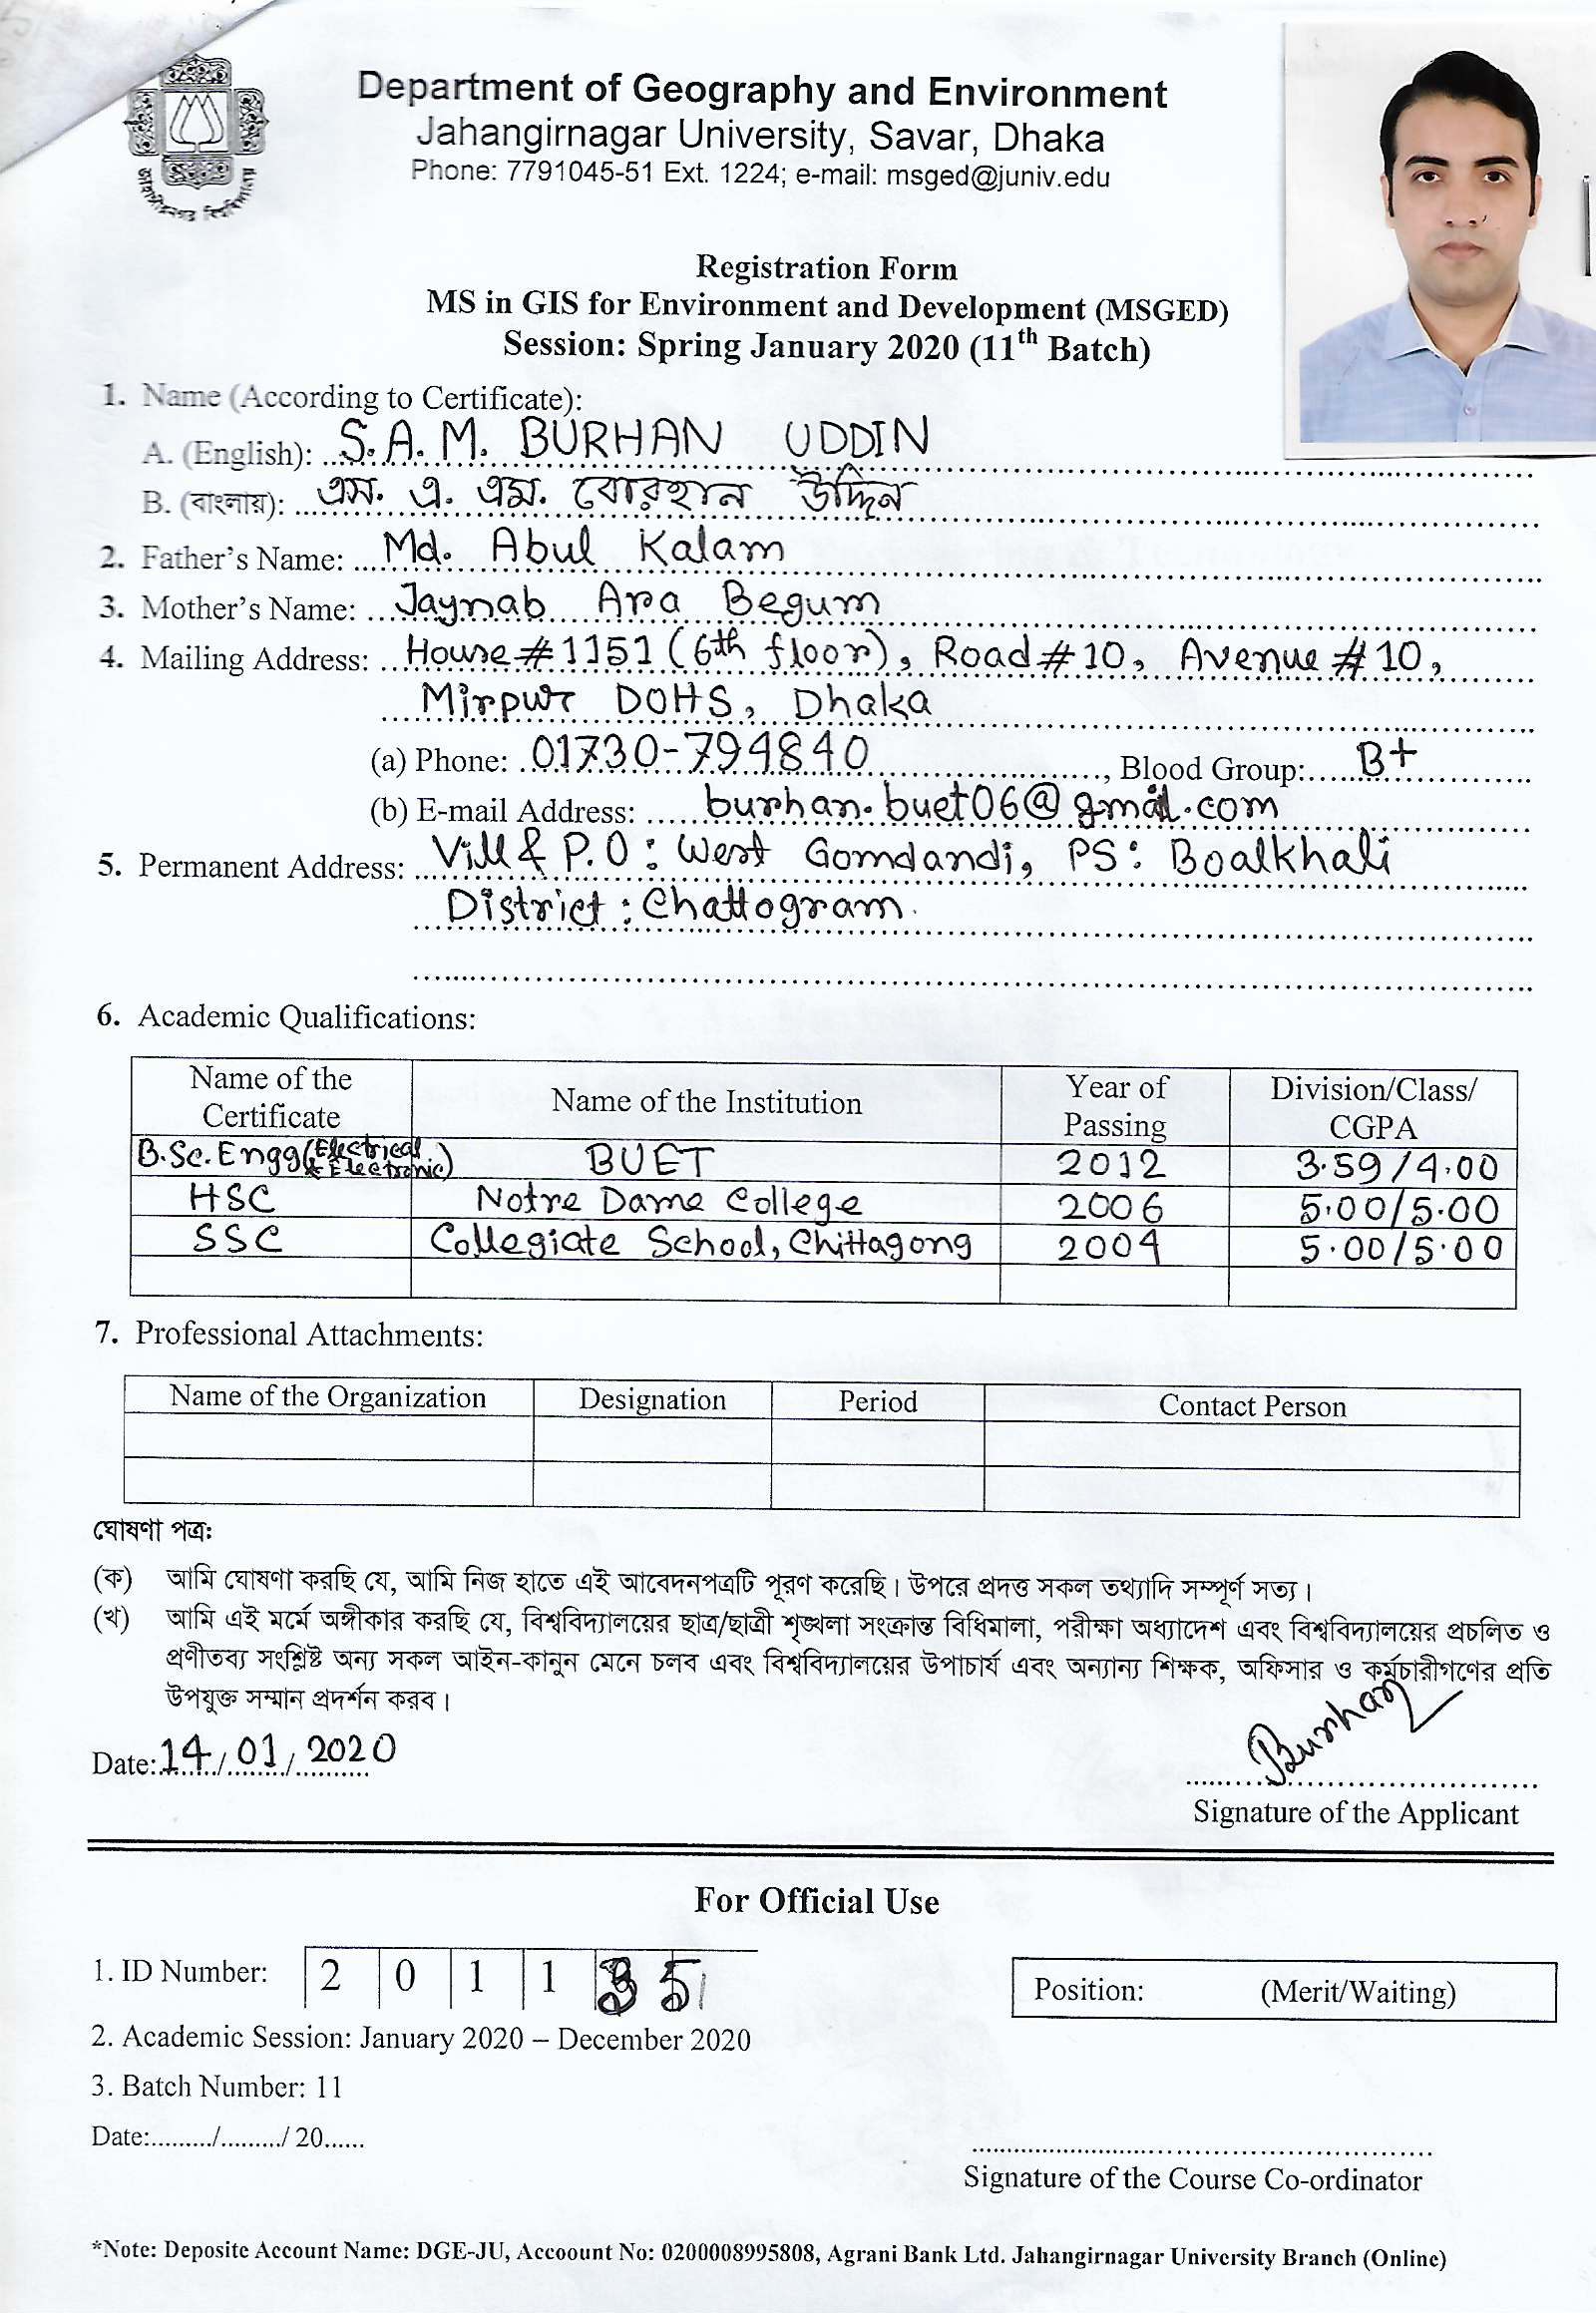 জাহাঙ্গীরনগর বিশ্ববিদ্যালয়
Department of Geography and Environment
Jahangirnagar University, Savar, Dhaka
Phone: 7791045-51 Ext. 1224; e-mail: msged@juniv.edu
Registration Form
MS in GIS for Environment and Development (MSGED)
Session: Spring January 2020 (11th Batch)
1. Name (According to Certificate):
A. (English): S.A.M. BURHAN UDDIN
B. (বাংলায়): এস. এ. এম. বোরহান উদ্দিন
2. Father's Name: Md. Abul Kalam
3. Mother's Name: Jaynab Ara Begum
4. Mailing Address: House#1151 (6th floor), Road#10, Avenue#10,
Mirpur DOHS, Dhaka
(a) Phone: 01730-794840, Blood Group: B+
(b) E-mail Address: burhan.buet06@gmail.com
5. Permanent Address: Vill & P.O: West Gomdandi, PS: Boalkhali
District: Chattogram.
6. Academic Qualifications:
Name of the Certificate Name of the Institution Year of Passing Division/Class/ CGPA
B.Sc. Engg (Electrical & Electronic) BUET 2012 3.59/4.00
HSC Notre Dame College 2006 5.00/5.00
SSC Collegiate School, Chittagong 2004 5.00/5.00
7. Professional Attachments:
Name of the Organization Designation Period Contact Person
ঘোষণা পত্র:
(ক) আমি ঘোষণা করছি যে, আমি নিজ হাতে এই আবেদনপত্রটি পূরণ করেছি। উপরে প্রদত্ত সকল তথ্যাদি সম্পূর্ণ সত্য।
(খ) আমি এই মর্মে অঙ্গীকার করছি যে, বিশ্ববিদ্যালয়ের ছাত্র/ছাত্রী শৃঙ্খলা সংক্রান্ত বিধিমালা, পরীক্ষা অধ্যাদেশ এবং বিশ্ববিদ্যালয়ের প্রচলিত ও
প্রণীতব্য সংশ্লিষ্ট অন্য সকল আইন-কানুন মেনে চলব এবং বিশ্ববিদ্যালয়ের উপাচার্য এবং অন্যান্য শিক্ষক, অফিসার ও কর্মচারীগণের প্রতি
উপযুক্ত সম্মান প্রদর্শন করব।
Burhan
Date: 14/01/2020
Signature of the Applicant
For Official Use
1. ID Number: 2 0 1 1 3 5
Position: (Merit/Waiting)
2. Academic Session: January 2020 – December 2020
3. Batch Number: 11
Date:........./........./ 20......
Signature of the Course Co-ordinator
*Note: Deposite Account Name: DGE-JU, Accoount No: 0200008995808, Agrani Bank Ltd. Jahangirnagar University Branch (Online)